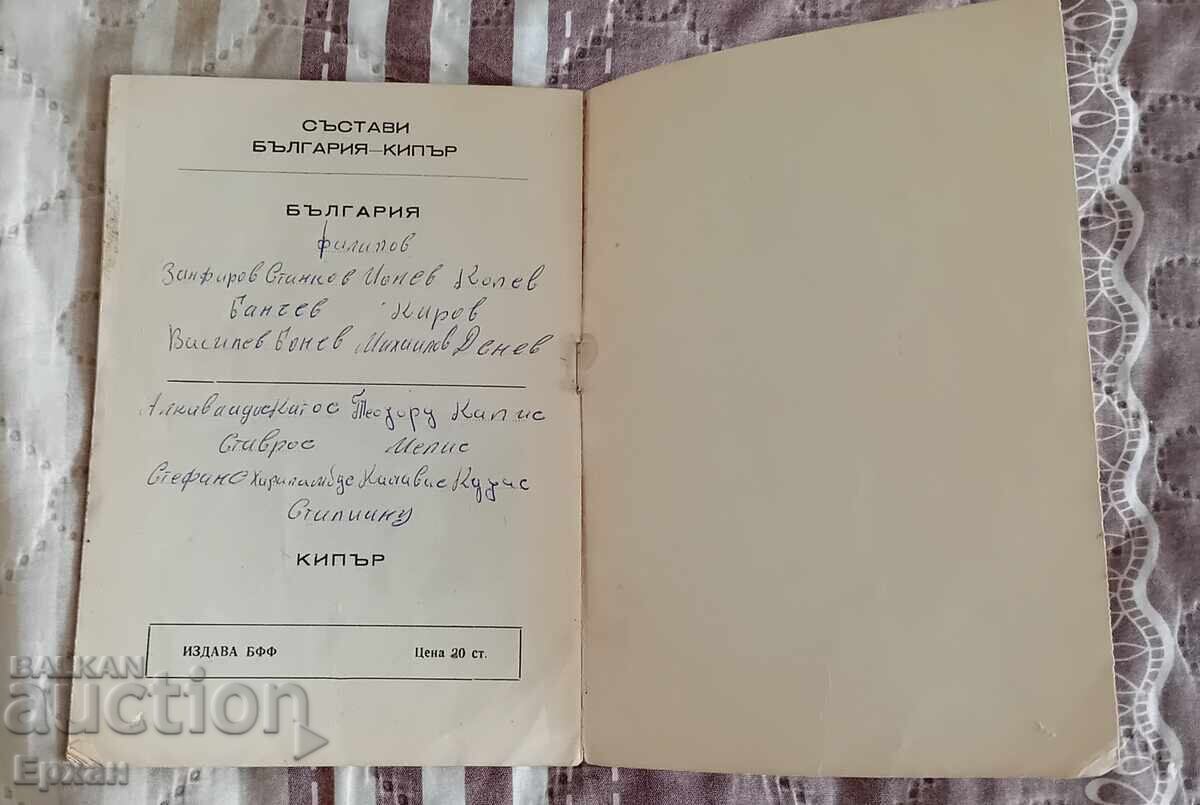 СЪСТАВИ
БЪЛГАРИЯ—КИПЪР
БЪЛГАРИЯ
Филипов
Занфиров Станков Ионев Колев
Банчев Киров
Василев Бонев Михаилов Денев
Алкивиадус Катос Теодору Калис
Ставрос Мелис
Стефанс Кукис
КИПЪР
ИЗДАВА БФФ Цена 20 ст.
BALKAN
auction
Ерхан